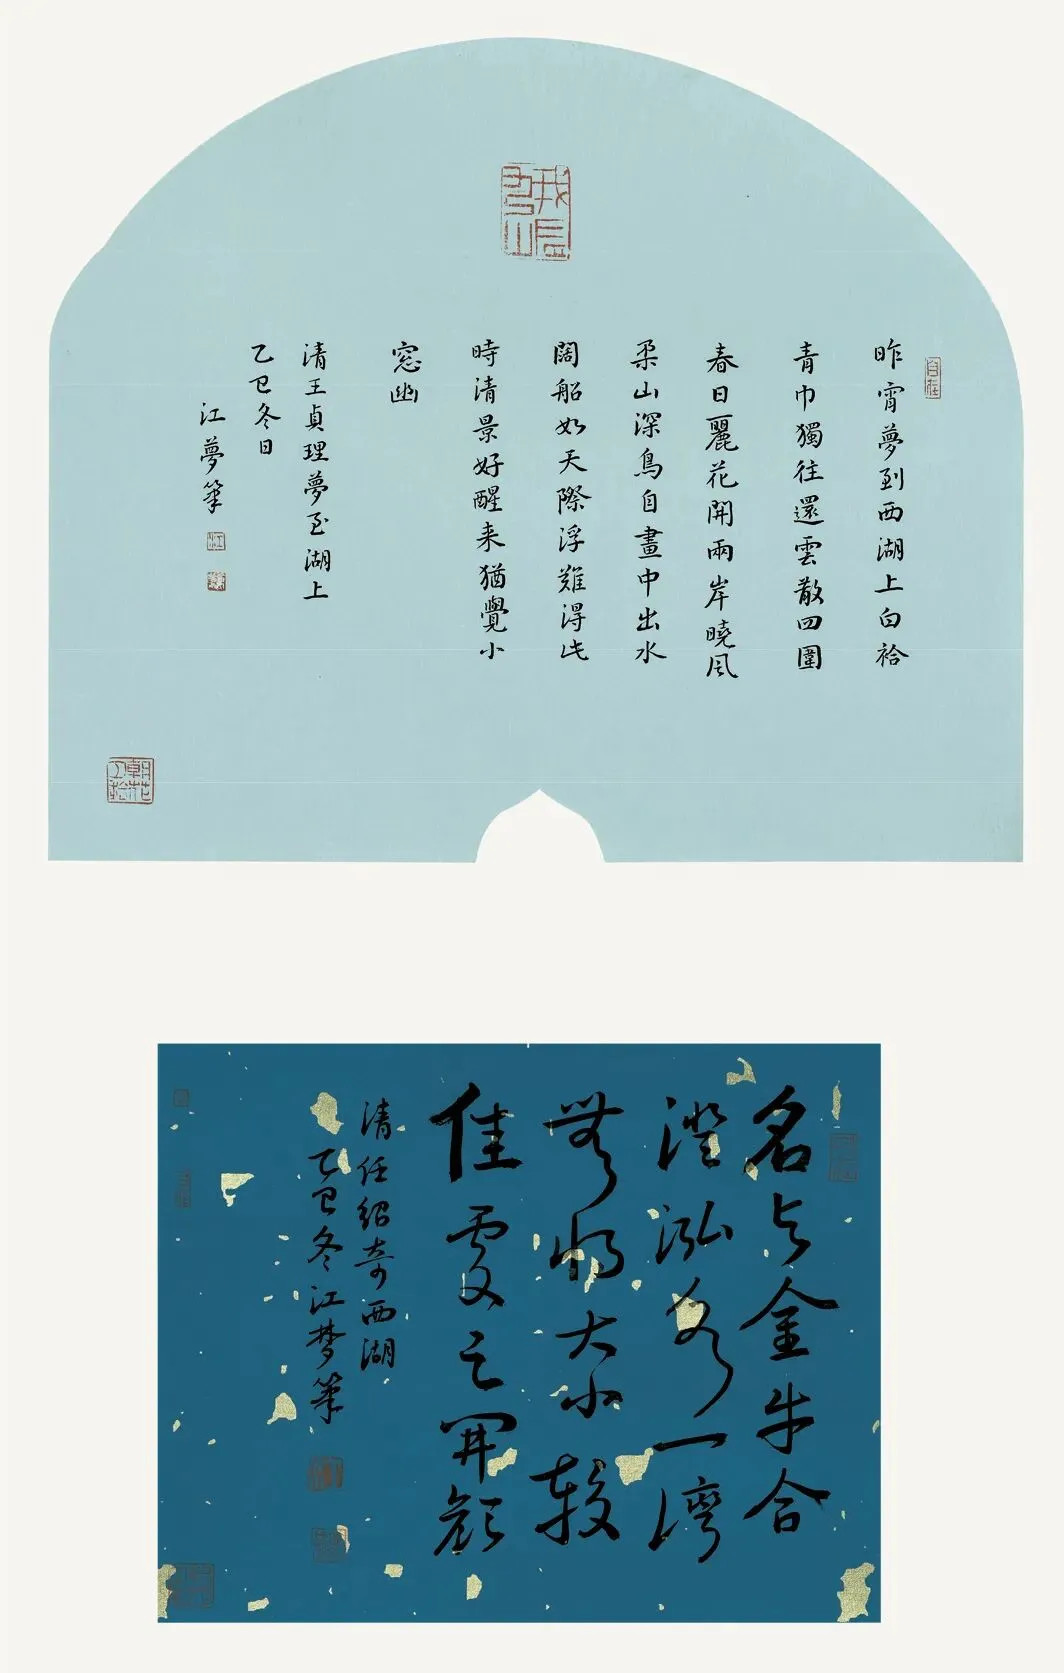 昨宵夢到西湖上白袷
青巾獨往還雲散四圍
春日麗花開兩岸曉風
柔山深鳥自畫中出水
闊船如天際浮難得此
時清景好醒来猶覺小
窓幽
清王貞理夢至湖上
乙巳冬日
江夢筆
自在
江
朝花夕拾
名与金牛合
澄泓各一湾
無將大小較
佳處足開顏
清任绍奇西湖
乙巳冬江梦筆